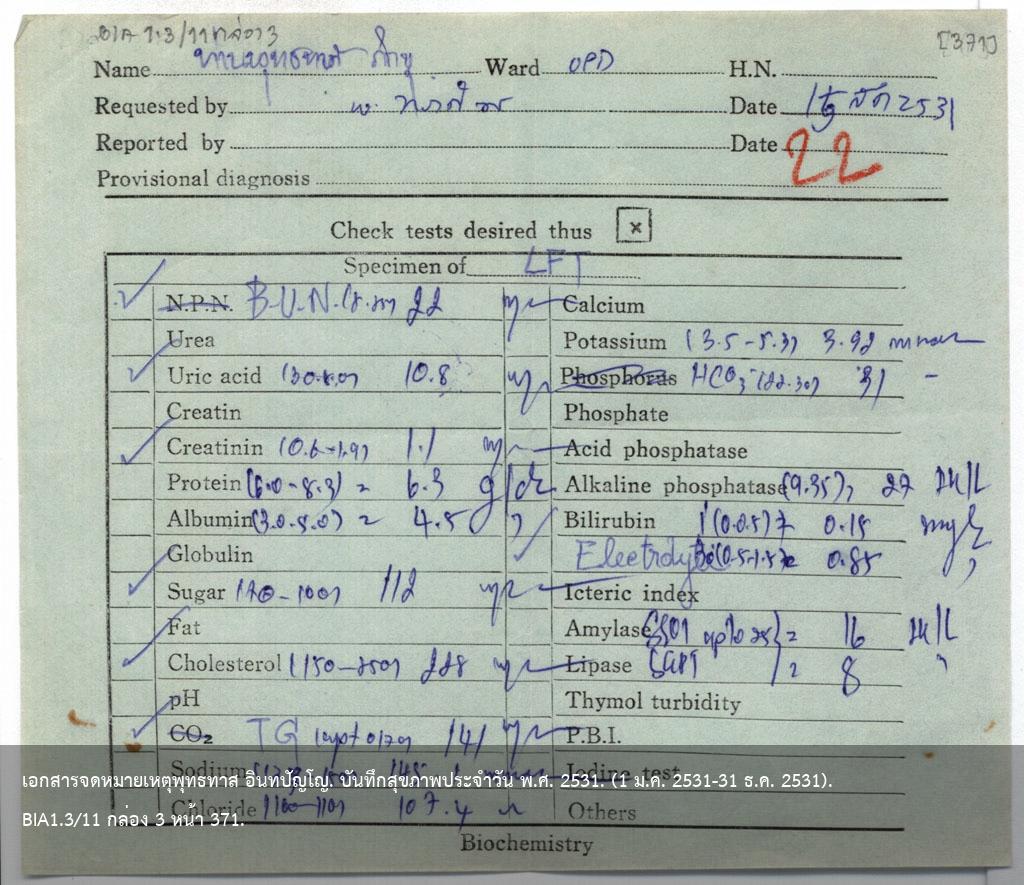 BIA 1.3/11 กล่อง 3 [371]
Name พุทธทาส ภิกขุ Ward OPD H.N.
Requested by Date 2531
Reported by Date 22
Provisional diagnosis
Check tests desired thus x
Specimen of LFT
N.P.N. B.U.N. 22 Calcium
Urea Potassium (3.5-5.3) 3.92
Uric acid 10.8 Phosphorus HCO3 31 -
Creatin Phosphate
Creatinin 1.1 Acid phosphatase
Protein (6.0-8.3) = 6.3 g/dL Alkaline phosphatase (9.35), 27
Albumin (3.0-5.0) = 4.5 " Bilirubin
Globulin Electrolyte 0.85 "
Sugar 112 Icteric index
Fat Amylase = 16
Cholesterol (150-250) 228 Lipase = 8 "
pH Thymol turbidity
CO₂ TG 141 P.B.I.
Sodium Iodine test
Chloride 107.4 Others
Biochemistry
เอกสารจดหมายเหตุพุทธทาส อินทปัญโญ. บันทึกสุขภาพประจำวัน พ.ศ. 2531. (1 ม.ค. 2531-31 ธ.ค. 2531).
BIA1.3/11 กล่อง 3 หน้า 371.